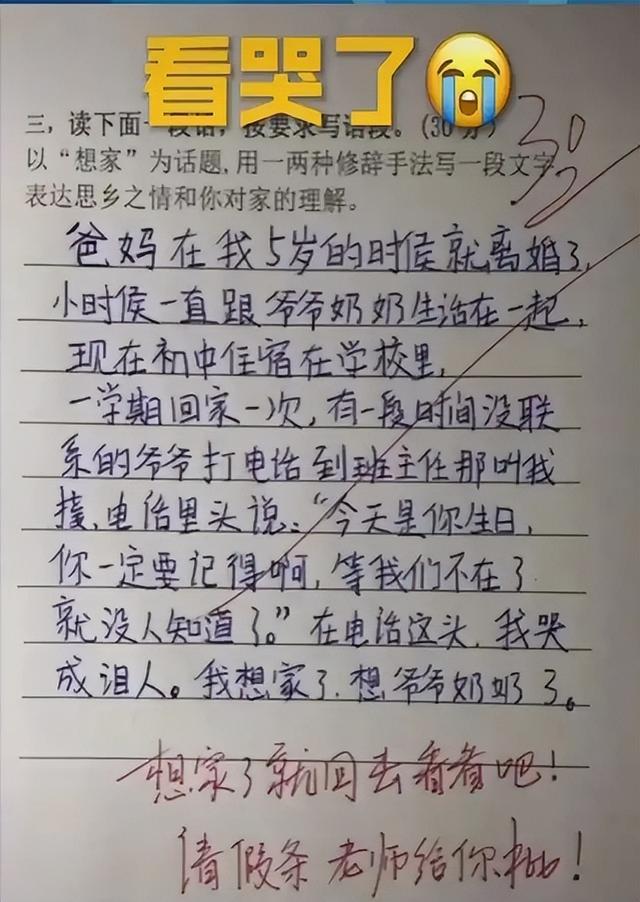 看哭了😭
三，读下面一段话，按要求写语段。(30分)
30
以“想家”为话题,用一两种修辞手法写一段文字
表达思乡之情和你对家的理解。
爸妈在我5岁的时候就离婚了,
小时候一直跟爷爷奶奶生活在一起,
现在初中住宿在学校里,
一学期回家一次,有一段时间没联
系的爷爷打电话到班主任那叫我
接,电话里头说:“今天是你生日,
你一定要记得啊,等我们不在了
就没人知道了。”在电话这头,我哭
成泪人。我想家了,想爷爷奶奶了。
想家了就回去看看吧!
请假条老师给你批!